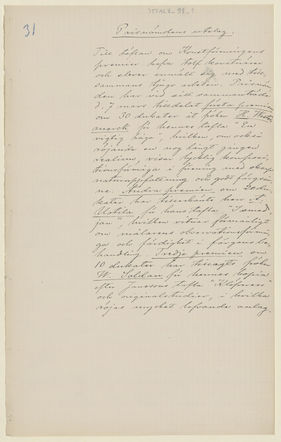 31
Prisnämndens utslag.
Till täflan om Konstföreningens
premier hafva tolf konstnärer
och elever anmält sig med till-
sammans tjugo arbeten. Prisnämn-
den har vid sitt sammanträde
d. 7 mars tilldelat första premien
om 30 dukater åt fröken H. Wester-
marck för hennes tafla "En
vigtig fråga", hvilken, om också
röjande en nog långt gången
realism, visar lycklig komposi-
tionsförmåga i förening med skarp
naturuppfattning och god färgsin-
ne. Andra premien om
dukater har tillerkänts herr A.
för hans tafla
hvilken vitnar förmånligt
om målarens observationsförmå-
ga och färdighet i färgens be-
handling. Tredje premien om
10 dukater har tillagts fröken
W. Soldan för hennes kopia
efter Janssons tafla "Klöfveress"
och originalstudier, i hvilka
röjas mycket lofvande anlag.